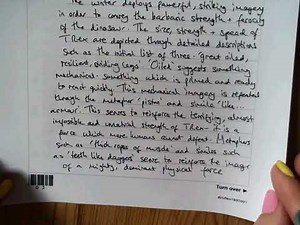 The writer deploys powerful, striking imagery
in order to convey the barbaric strength + ferocity
of the dinosaur. The size, strength + speed of
T.Rex are depicted through detailed descriptions
such as the initial list of three - 'great oiled,
resilient, striding legs'. 'Oiled' suggests something
mechanical - something which is primed and ready
to react quickly. This mechanical imagery is repeated
through the metaphor 'piston' and simile 'like...
armour'. This serves to reinforce the terrifying, almost
impossible and unnatural strength of T.Rex - it is a
force which mere humans cannot defeat. Metaphors
such as 'thick ropes of muscle' and similes such
as 'teeth like daggers' serve to reinforce the image
of a mighty, dominant physical force
Turn over